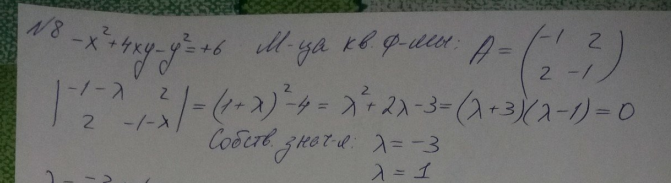 №8 -x²+4xy-y²=+6 М-ца кв. ф-мы: A = (-1 2
2 -1)
|-1-λ 2
2 -1-λ| = (1+λ)²-4 = λ²+2λ-3=(λ+3)(λ-1)=0
Собств. знач-я: λ=-3
λ=1